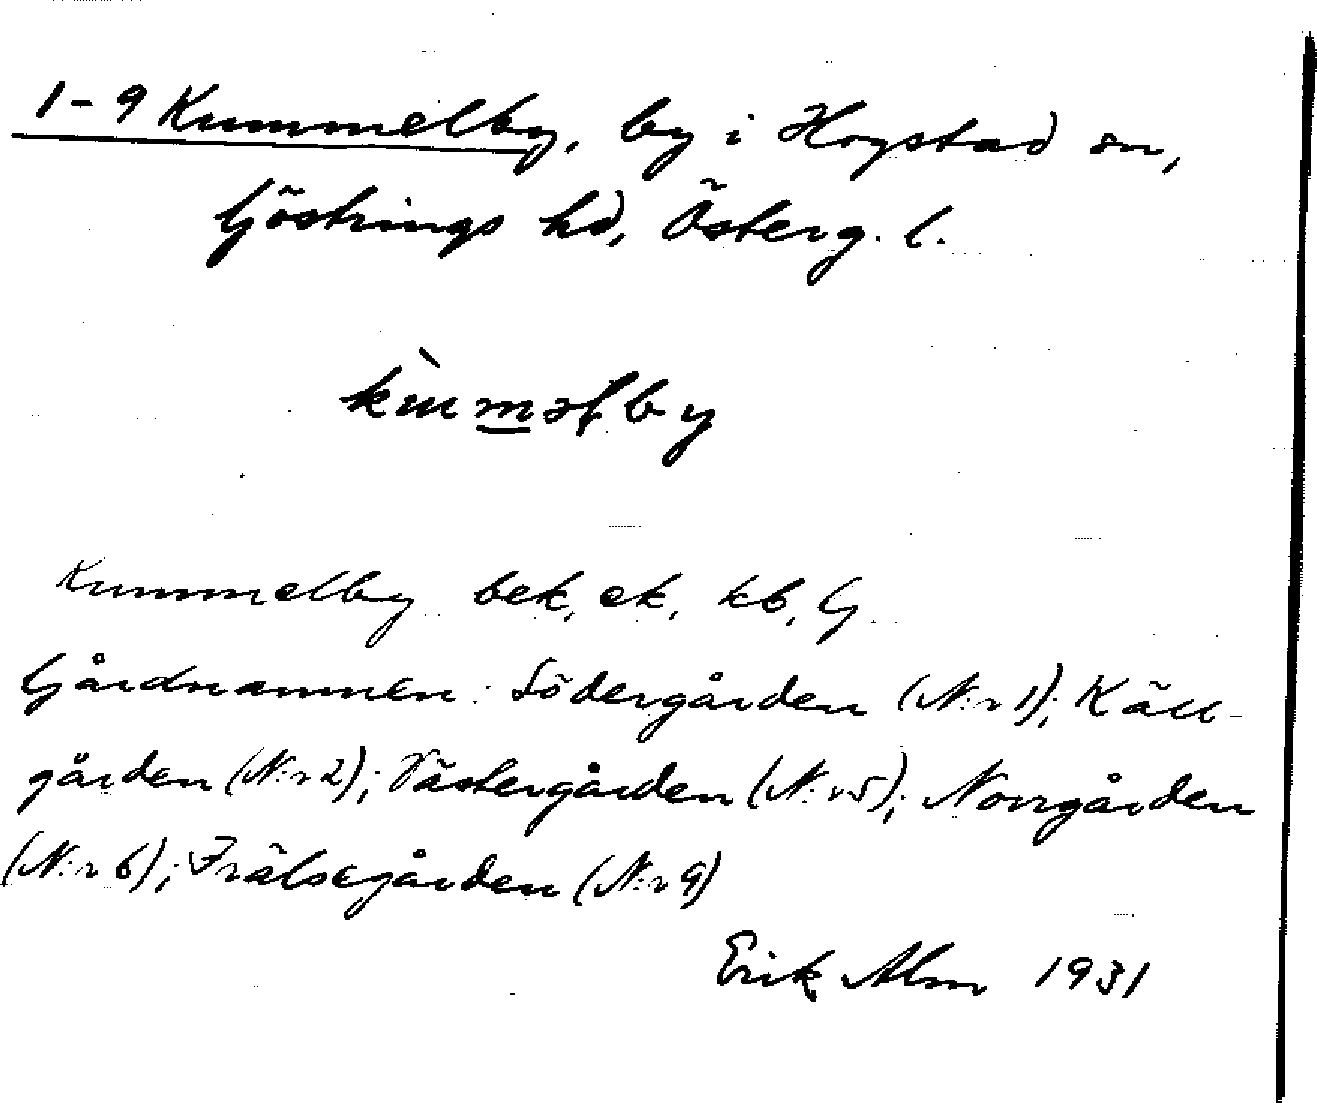 1-9 Kummelby, by i Hogstad sn,
Göstrings hd, Österg. l.
kùməlby
Kummelby bek, ek, kb, G
Gårdnamnen: Södergården (N:r 1); Käll-
gården (N:r 2); Västergården (N:r 5); Norrgården
(N:r 6); Frälsegården (N:r 9)
Erik Alm 1931